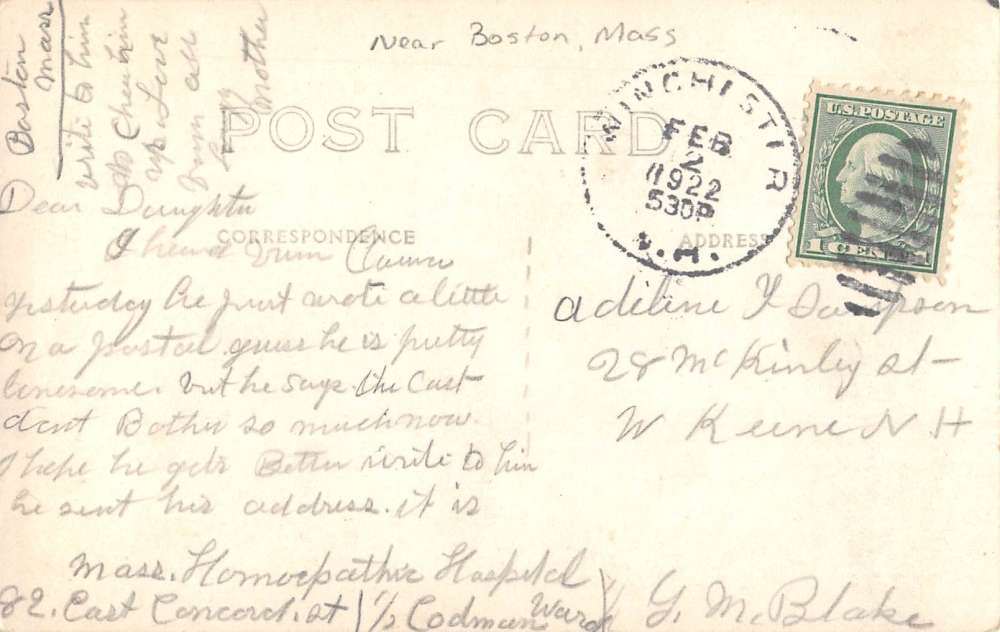 Near Boston, Mass
POST CARD
CORRESPONDENCE
ADDRESS
WINCHESTER
FEB
2
1922
530P
N.H.
U.S. POSTAGE
1 CENT 1
Dear Daughter
I heard from
yesterday he just wrote a little
on a postal guess he is pretty
lonesome. but he says the Cast
dont Bother so much now.
I hope he gets Better write to him
he sent his address. it is
Mass. Homoepathic Hospital
82. East Concord. st 1/2 Codman Ward
G. M. Blake
Boston
Mass
write to him
Cheer him
up Love
from all
Mother
Adeline F
28 McKinley st
W Keene N H